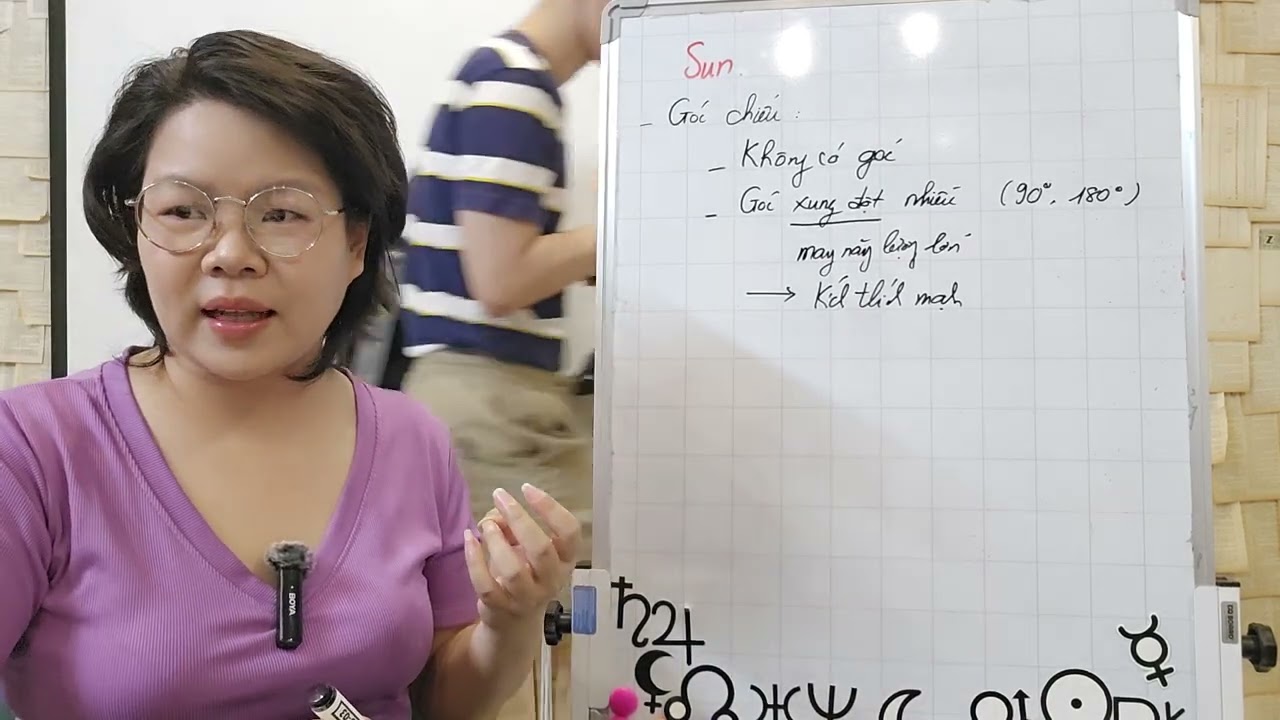 Sun.
- Góc chiếu :
- Không có góc
- Góc xung đột nhiều (90°, 180°)
may năng lượng lớn
→ Kích thích mạnh
BOYA